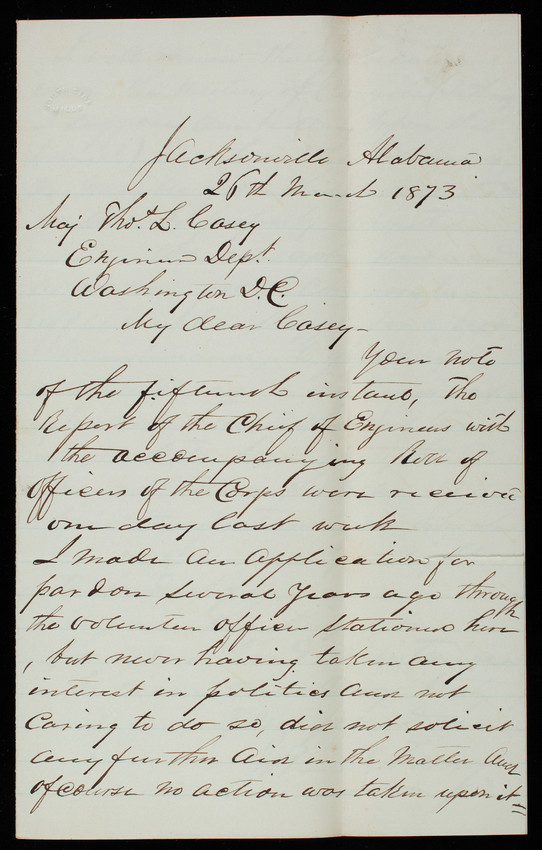 Jacksonville Alabama
26th March 1873
Maj Thos. L. Casey
Engineer Dept.
Washington D.C.
My dear Casey-
Your note
of the fifteenth instant, the
Report of the Chief of Engineers with
the accompanying Roll of
officers of the Corps were received
one day last week
I made an application for
pardon several years ago through
the volunteer officer stationed here
, but never having taken any
interest in politics and not
caring to do so, did not solicit
any further aid in the matter and
of course no action was taken upon it=